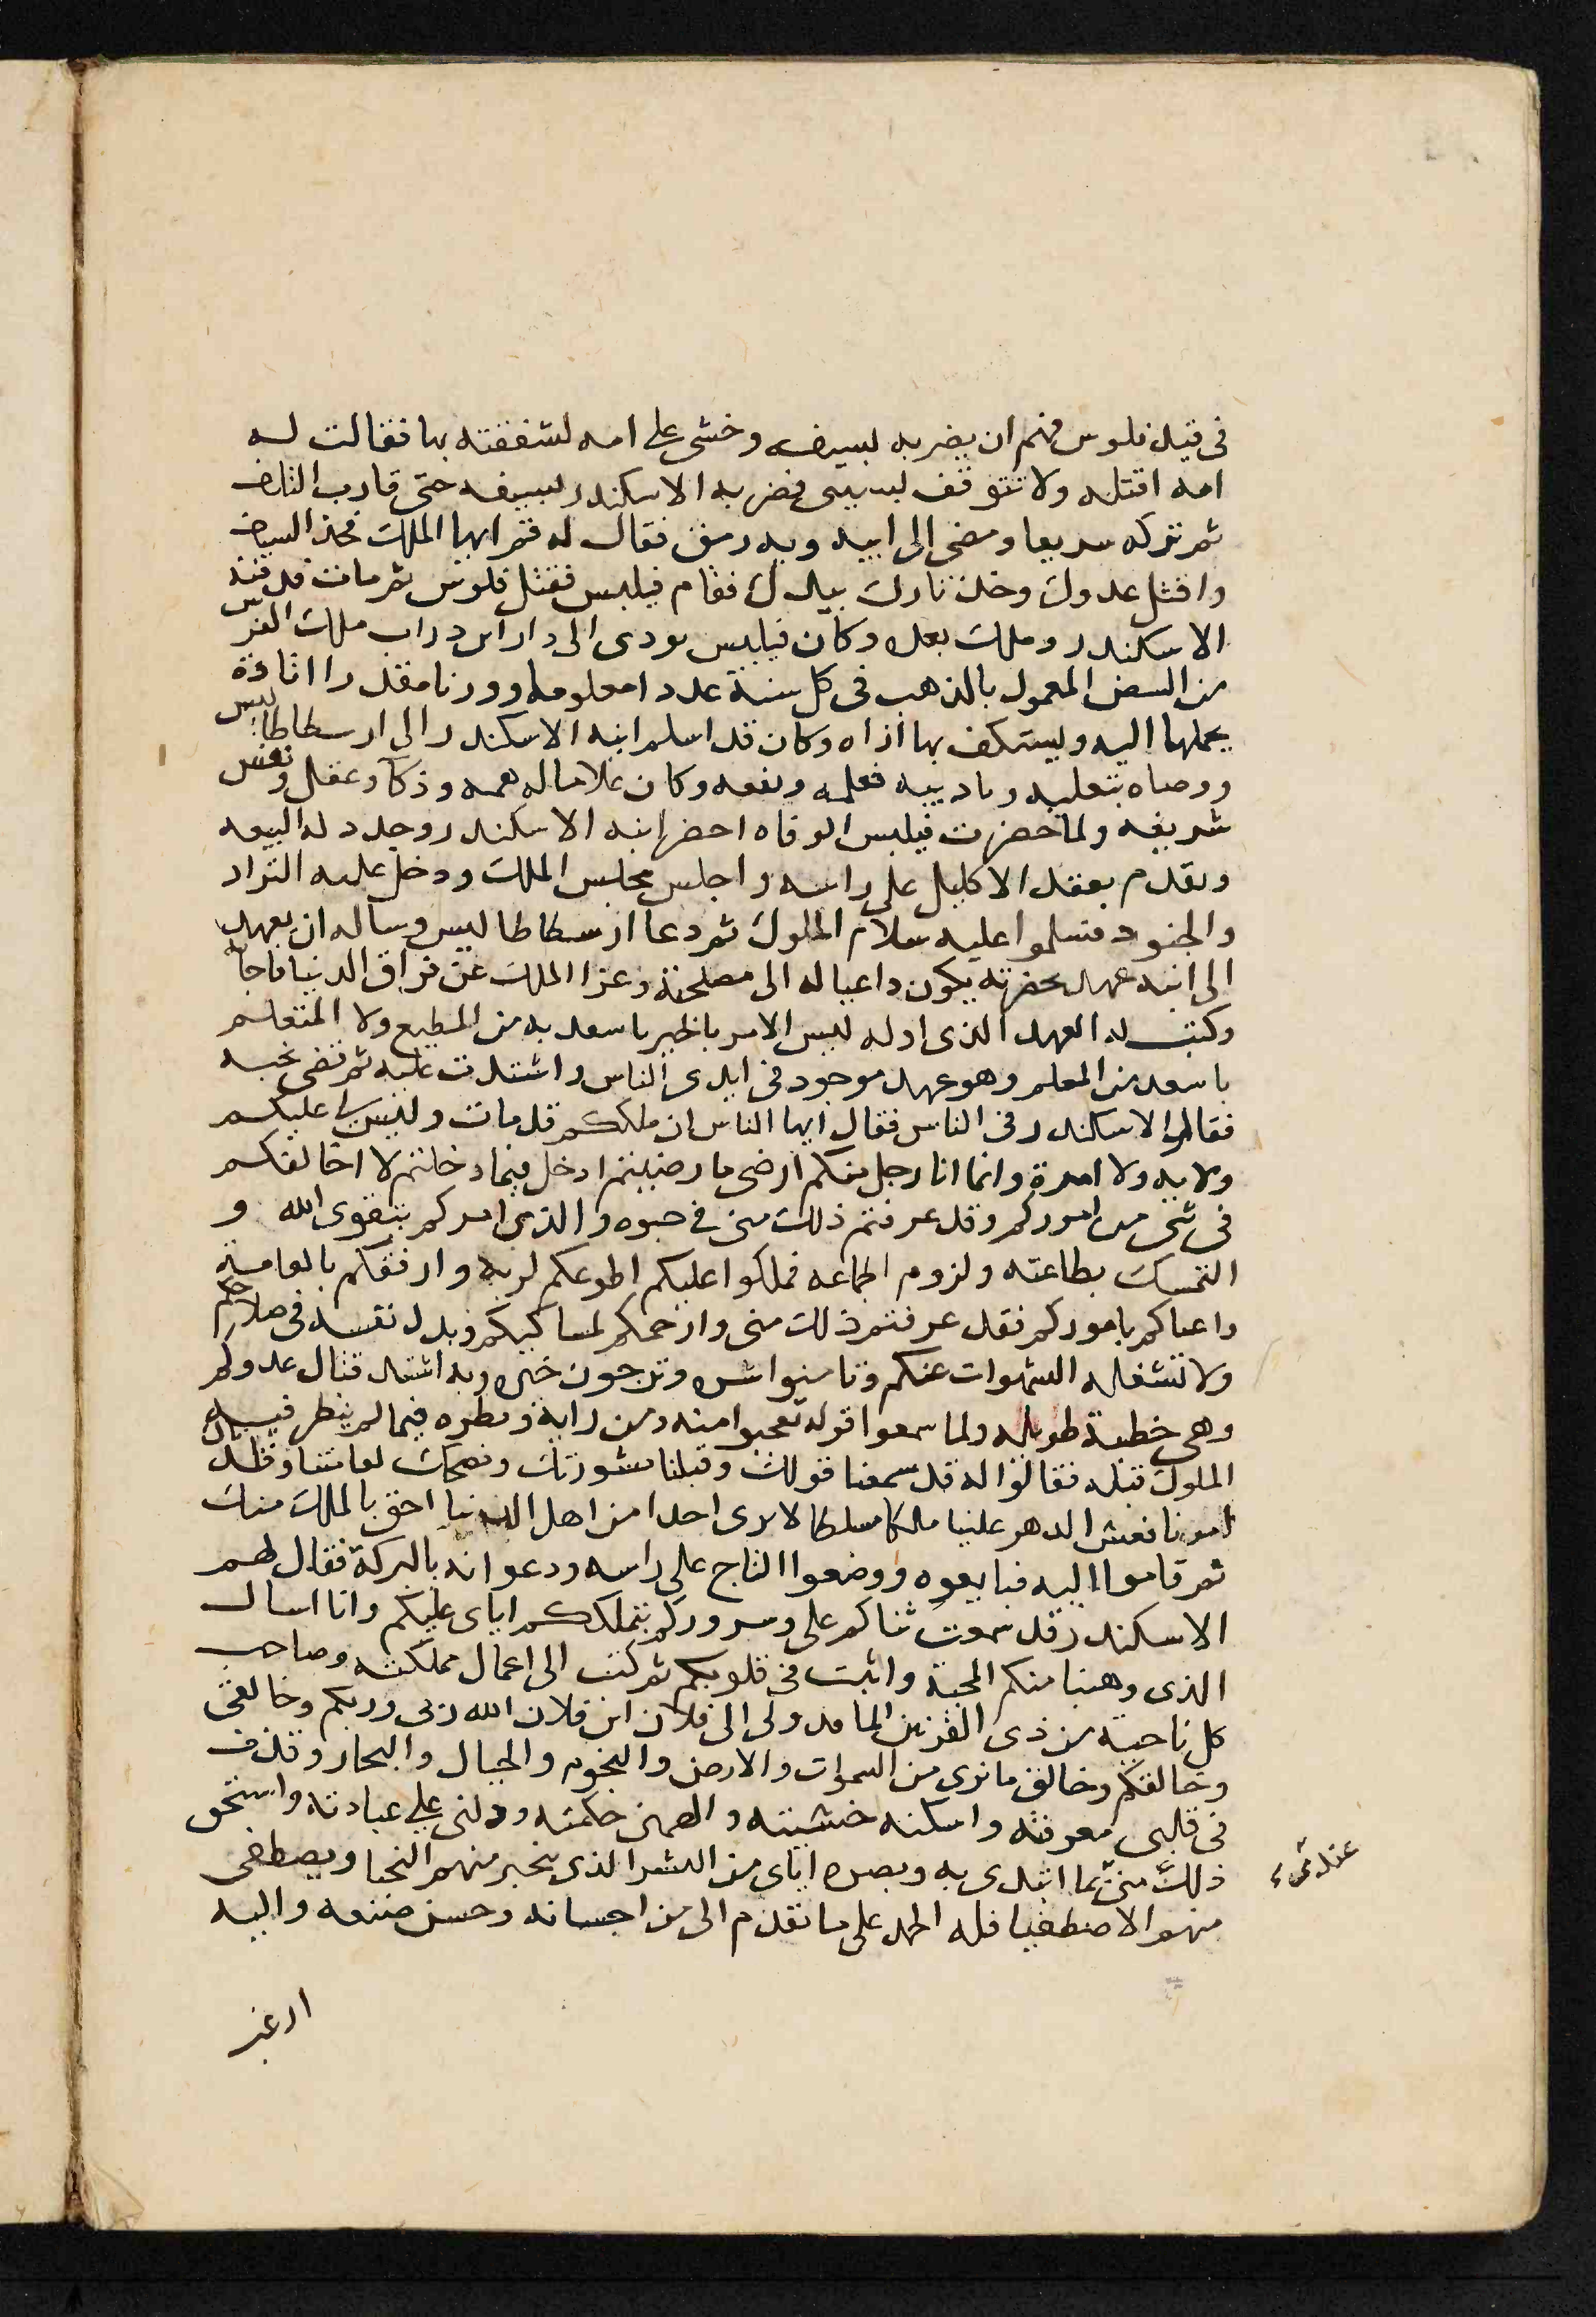 فى قيد فلوس فهم ان يضربه بسيفه وخشى على امه لشفقته بها فقالت له
امه اقتله ولا تتوقف بسببى فضربه الاسكندر بسيفه حتى قارب التلف
ثم تركه سريعا ومضى الى ابيه وبه رمق فقال له قم ايها الملك فخذ السيف
واقتل عدوك وخذ ثارك بيدك فقام فيلبس فقتل فلوس ثم مات فدفنه
الاسكندر وملك بعده وكان فيلبس يودى الى دارا بن داراب ملك الفرس
من البيض المعمول بالذهب فى كل سنة عددا معلوما ووزنا مقدرا اتاوة
يحملها اليه ويستكف بها اذاه وكان قد اسلم ابنه الاسكندر الى ارسطاطاليس
ووصاه بتعليمه وتاديبه فعلمه ونفعه وكان غلاما له همه وذكا وعقل ونفس
شريفه ولما حضرت فيلبس الوفاه احضر ابنه الاسكندر وجدد له البيعه
وتقدم بعقد الاكليل على راسه واجلس مجلس الملك ودخل عليه القواد
والجنود فسلموا عليه سلام الملوك ثم دعا ارسطاطاليس وساله ان يعهد
الى ابنه عهدا بحضرته يكون داعيا له الى مصلحته وعزا الملك عن فراق الدنيا فاجابه
وكتب له العهد الذى اوله ليس الامر بالخير باسعد به من المطيع ولا المتعلم
باسعد من المعلم وهو عهد موجود فى ايدى الناس واشتدت عليه ثم قضى نحبه
فقام الاسكندر فى الناس فقال ايها الناس ان ملككم قد مات وليس لى عليكم
ولايه ولا امرة وانما انا رجل منكم ارضى ما رضيتم ادخل فيما دخلتم لا اخالفكم
فى شى من اموركم وقد عرفتم ذلك منى فى حيوه والدى امركم بتقوى الله و
التمسك بطاعته ولزوم الجماعه فملكوا عليكم اطوعكم لربه وارفقكم بالعامة
واعناكم باموركم فقد عرفتم ذلك منى وارحمكم لمساكينكم وبذل نفسه فى صلاحكم
ولا تشغله الشهوات عنكم وتامنوا شره وترجون خيره وبه اشتد قتال عدوكم
وهى خطبة طويله ولما سمعوا قوله تعجبوا منه ومن رايه ونظره فيما لم ينظر فيه
الملوك قبله فقالوا له قد سمعنا قولك وقبلنا مشورتك ونصحك لعامتنا وقلدناك
امورنا فعش الدهر علينا ملكا مسلطا لا نرى احدا من اهل الدنيا احق بالملك منك
ثم قاموا اليه فبايعوه ووضعوا التاج على راسه ودعوا له بالبركة فقال لهم
الاسكندر قد سمعت ثناكم على وسروركم بتملككم اياى عليكم وانا اسال
الذى وهبنا منكم المحبة واثبت فى قلوبكم ثم كتب الى اعمال مملكته وصاحب
كل ناحية من ذى القرنين الماقدونى الى فلان ابن فلان الله ربى وربكم وخالقى
وخالقكم وخالق ما نرى من السموات والارض والنجوم والجبال والبحار وقذف
فى قلبى معرفته واسكنه خشيته والهمنى حكمته ودلنى على عبادته واستحق
ذلك منى بما ابتدى به وبصره اياى من البشر الذى يتخير منهم النجبا ويصطفى
منهم الاصطفيا فله الحمد على ما تقدم الى من احسانه وحسن صنعه واليه
ارغب